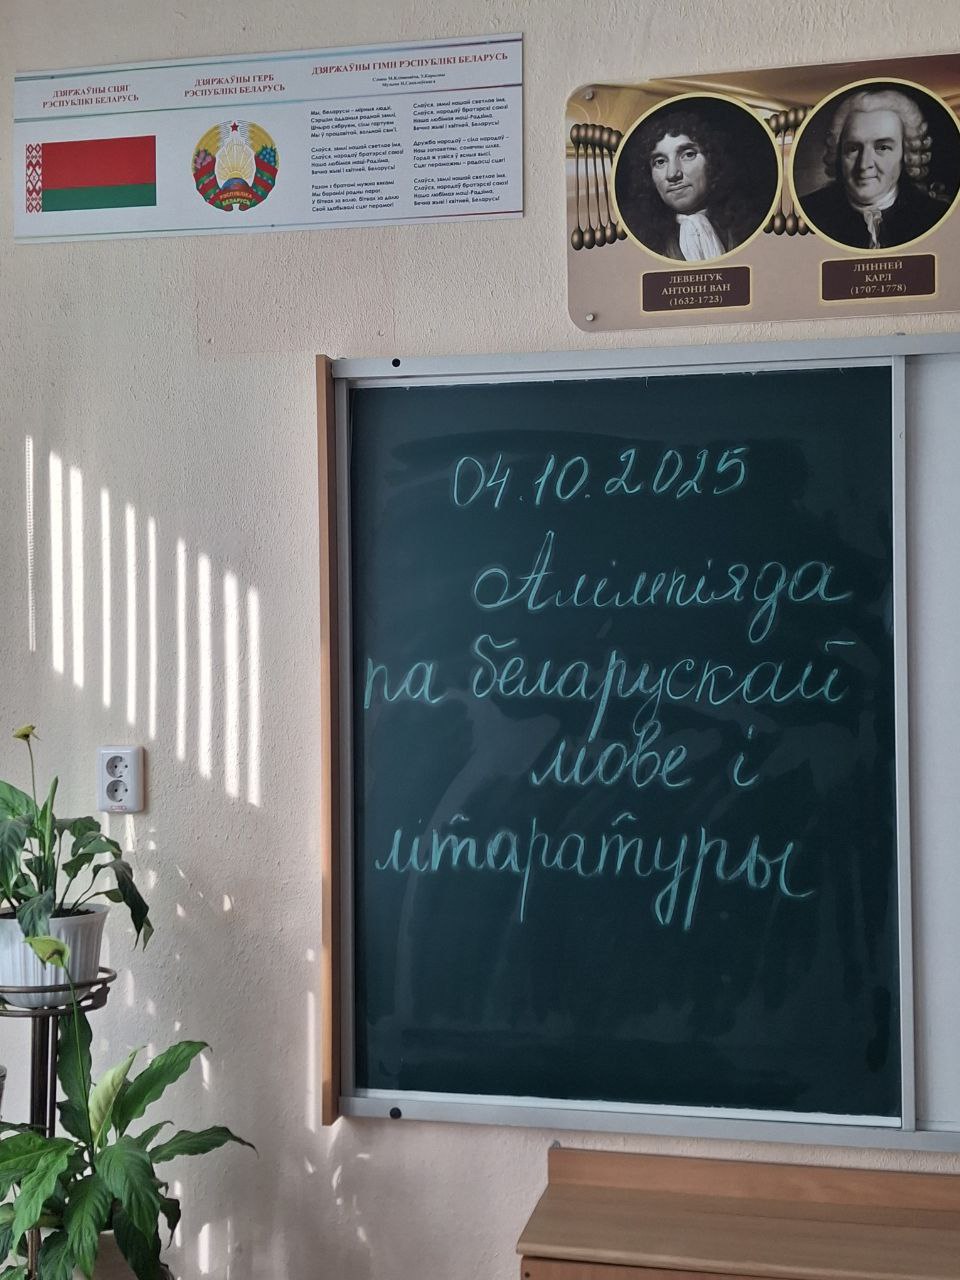 ДЗЯРЖАЎНЫ СЦЯГ
РЭСПУБЛІКІ БЕЛАРУСЬ
ДЗЯРЖАЎНЫ ГЕРБ
РЭСПУБЛІКІ БЕЛАРУСЬ
ДЗЯРЖАЎНЫ ГІМН РЭСПУБЛІКІ БЕЛАРУСЬ
Словы М.Клімковіча, У.Карызны
Музыка Н.Сакалоўскага
Мы, беларусы – мірныя людзі,
Сэрцам адданыя роднай зямлі,
Шчыра сябруем, сілы гартуем
Мы ў працавітай, вольнай сям'і.
Слаўся, зямлі нашай светлае імя,
Слаўся, народаў братэрскі саюз!
Наша любімая маці-Радзіма,
Вечна жыві і квітней, Беларусь!
Разам з братамі мужна вякамі
Мы баранілі родны парог,
У бітвах за волю, бітвах за долю
Свой здабывалі сцяг перамог!
Слаўся, зямлі нашай светлае імя,
Слаўся, народаў братэрскі саюз!
Наша любімая маці-Радзіма,
Вечна жыві і квітней, Беларусь!
Дружба народаў – сіла народаў –
Наш запаветны, сонечны шлях.
Горда ж узвіся ў ясныя высі,
Сцяг пераможны – радасці сцяг!
Слаўся, зямлі нашай светлае імя,
Слаўся, народаў братэрскі саюз!
Наша любімая маці-Радзіма,
Вечна жыві і квітней, Беларусь!
РЭСПУБЛІКА
БЕЛАРУСЬ
ЛЕВЕНГУК
АНТОНИ ВАН
(1632-1723)
ЛИННЕЙ
КАРЛ
(1707-1778)
04.10.2025
Алімпіяда
па беларускай
мове і
літаратуры